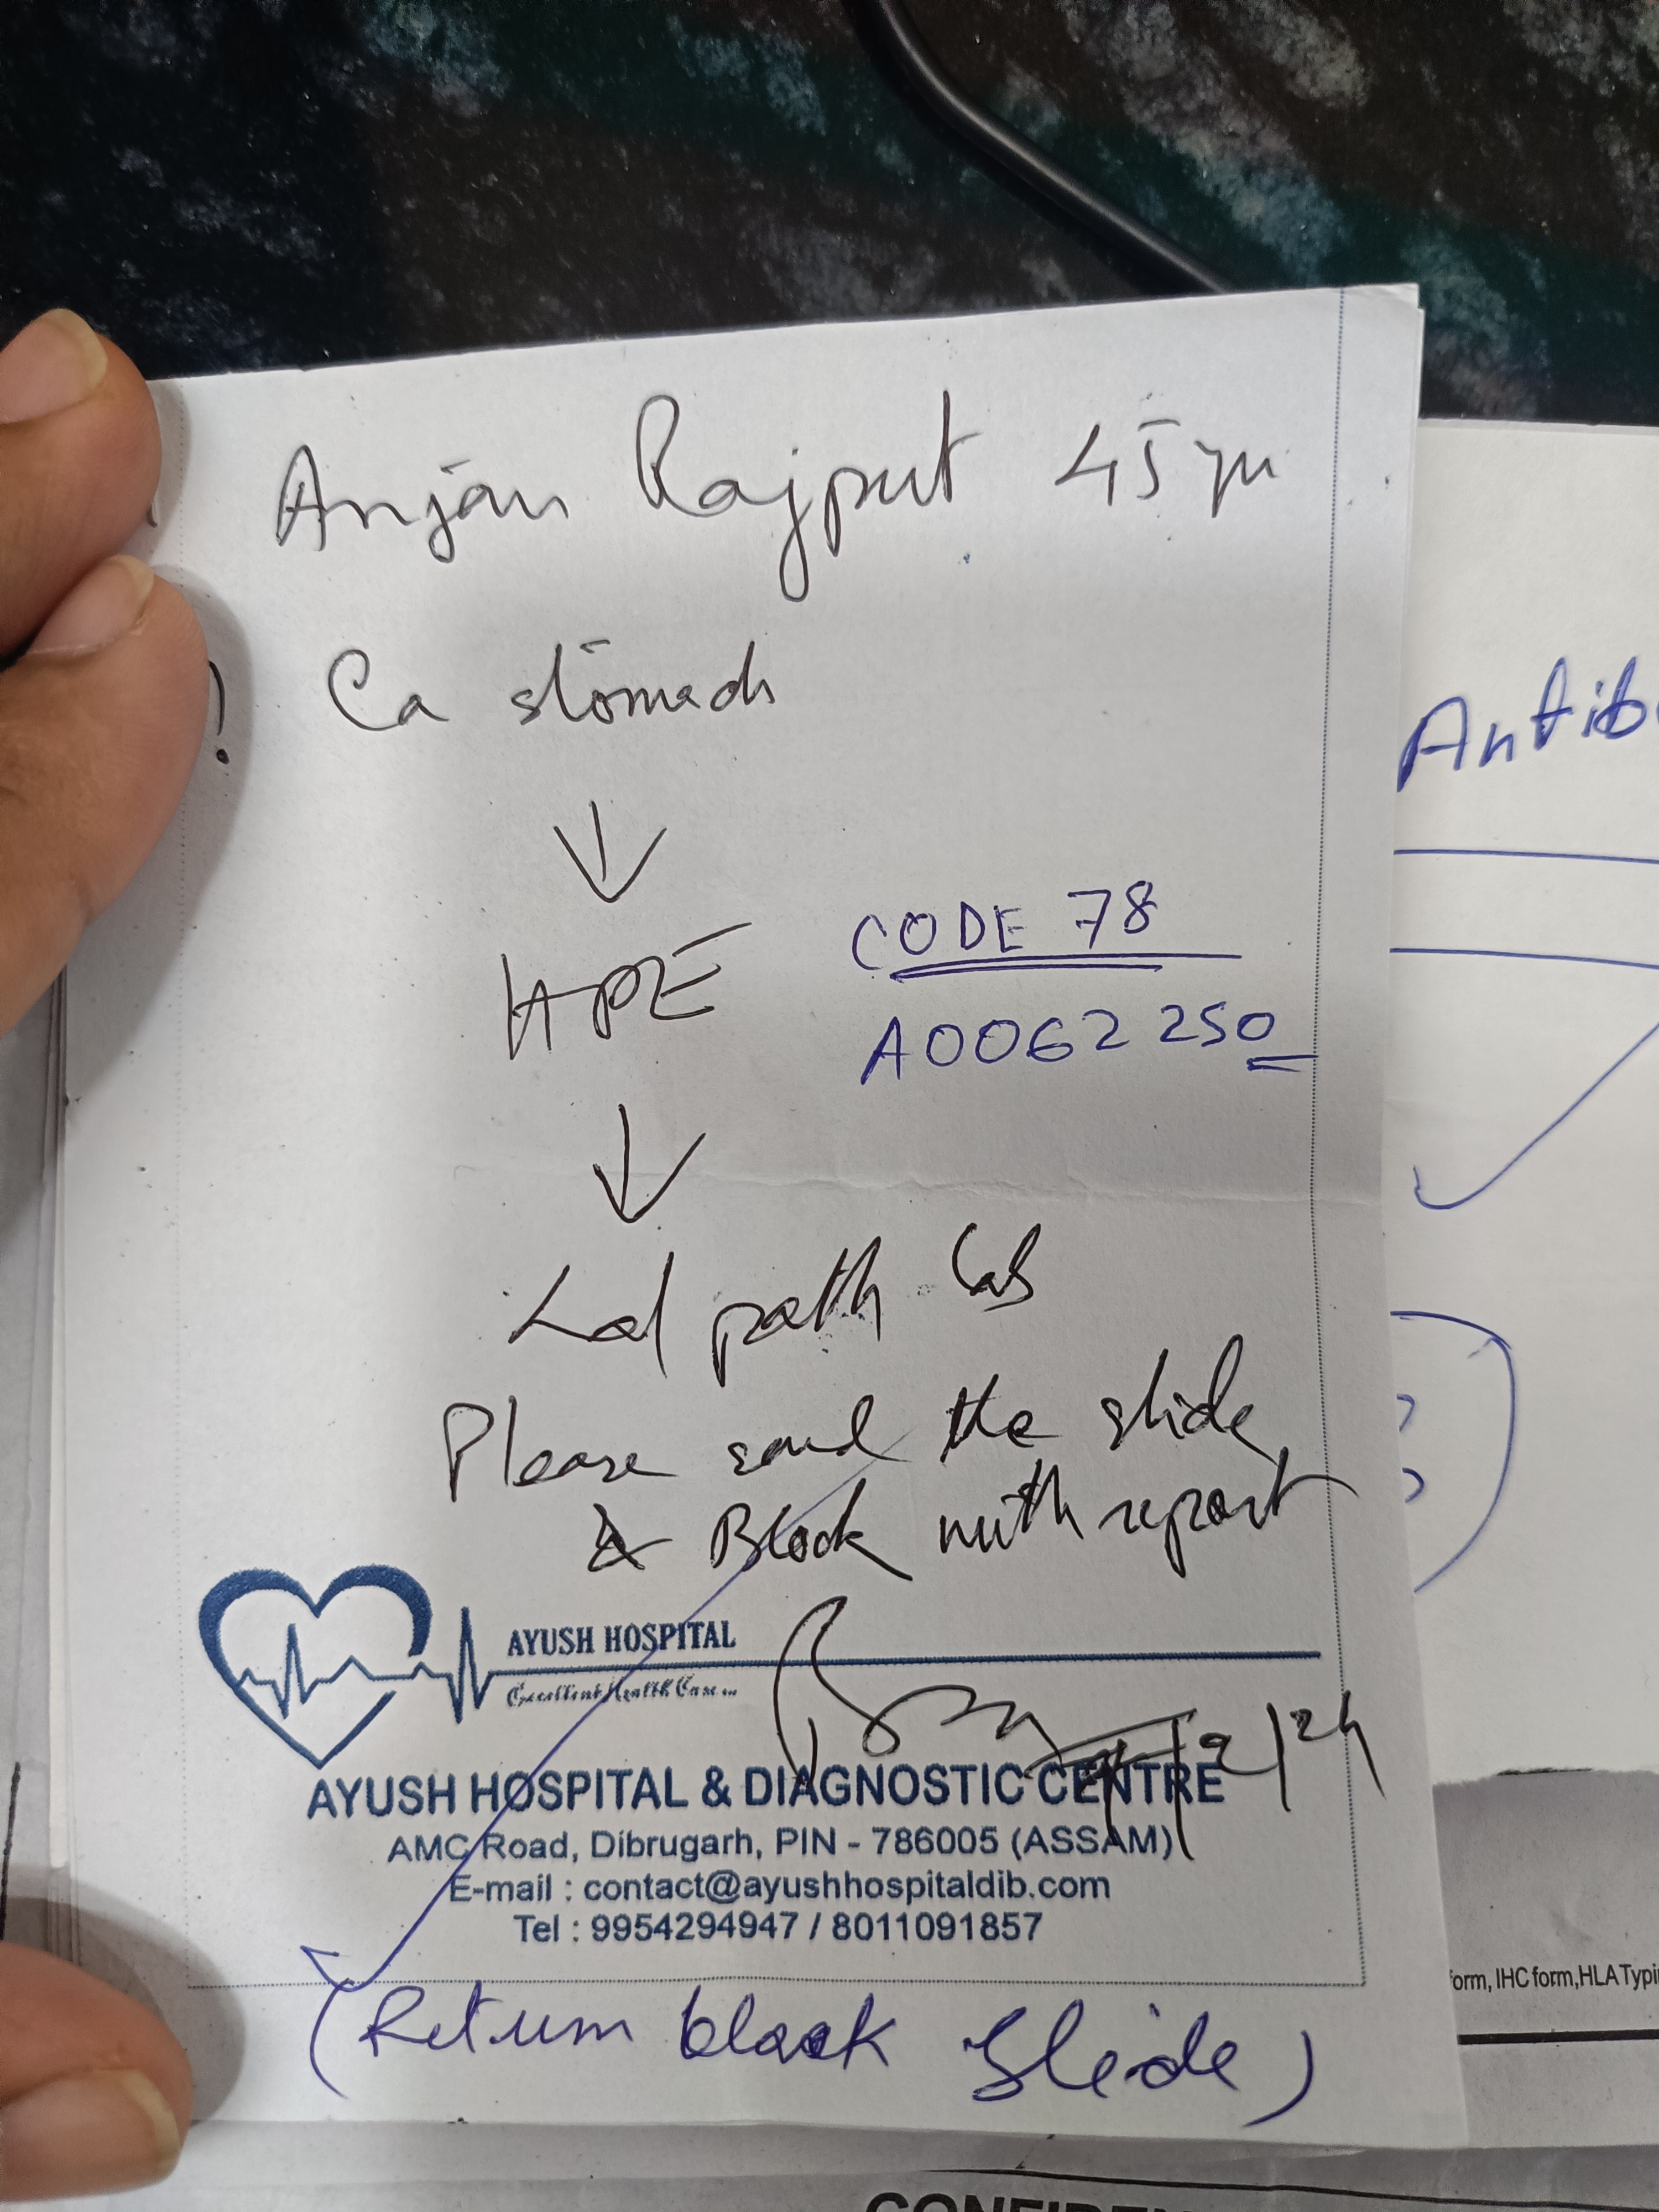 Anjan Rajput 45 yrs
! Ca stomach
HPE
CODE 78
A0062250
Lal path Lab
Please send the slide
& Block with report
AYUSH HOSPITAL
Excellent Health Care...
/2/24
AYUSH HOSPITAL & DIAGNOSTIC CENTRE
AMC Road, Dibrugarh, PIN - 786005 (ASSAM)
E-mail : contact@ayushhospitaldib.com
Tel : 9954294947 / 8011091857
(Return block Slide)
Antib
form, IHC form, HLA Typi
CONFIDEN